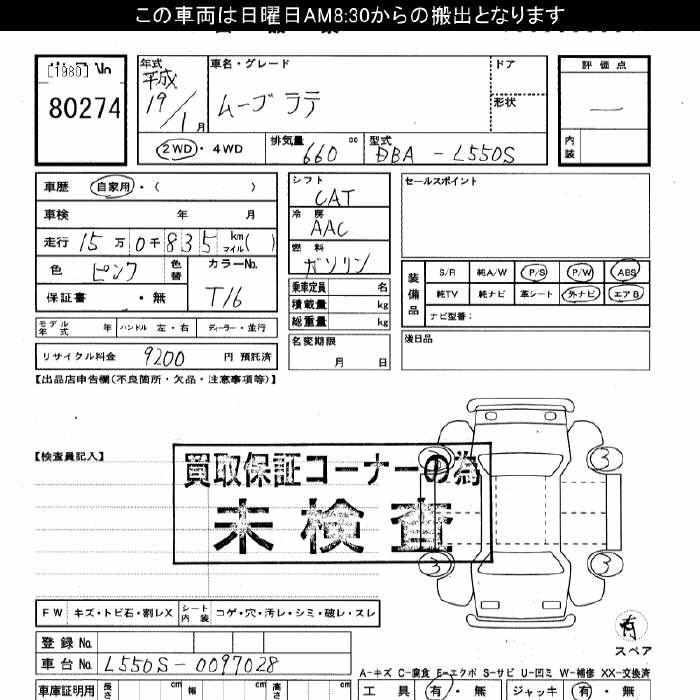 この車両は日曜日AM8:30からの搬出となります
[1980]
80274
年式
平成
19/1月
車名・グレード
ムーブ ラテ
ドア
形状
評価点
内装
2WD・4WD
排気量
660 cc
型式
DBA - L550S
車歴 自家用・( )
車検 年 月
走行 15万0千835 km マイル( )
色 ピンク 色替
カラーNo.
T16
保証書 ・無
モデル年式 年 ハンドル 左・右 ディーラー・並行
リサイクル料金 9200 円 預託済
シフト
CAT
冷房
AAC
燃料
ガソリン
乗車定員 名
積載量 kg
総重量 kg
名変期限
月 日
セールスポイント
装備品
S/R 純A/W P/S P/W ABS
純TV 純ナビ 革シート 外ナビ エアB
ナビ型番:
後日品
【出品店申告欄(不良箇所・欠品・注意事項等)】
【検査員記入】
買取保証コーナーの為
未検査
3 3
3 3
有
スペア
FW キズ・トビ石・割レX シート内装 コゲ・穴・汚レ・シミ・破レ・スレ
登録No.
車台No. L550S-0097028
A-キズ C-腐食 E-エクボ S-サビ U-凹ミ W-補修 XX-交換済
車庫証明用 長さ cm 幅 cm 高さ cm
工具 有・無 ジャッキ 有・無